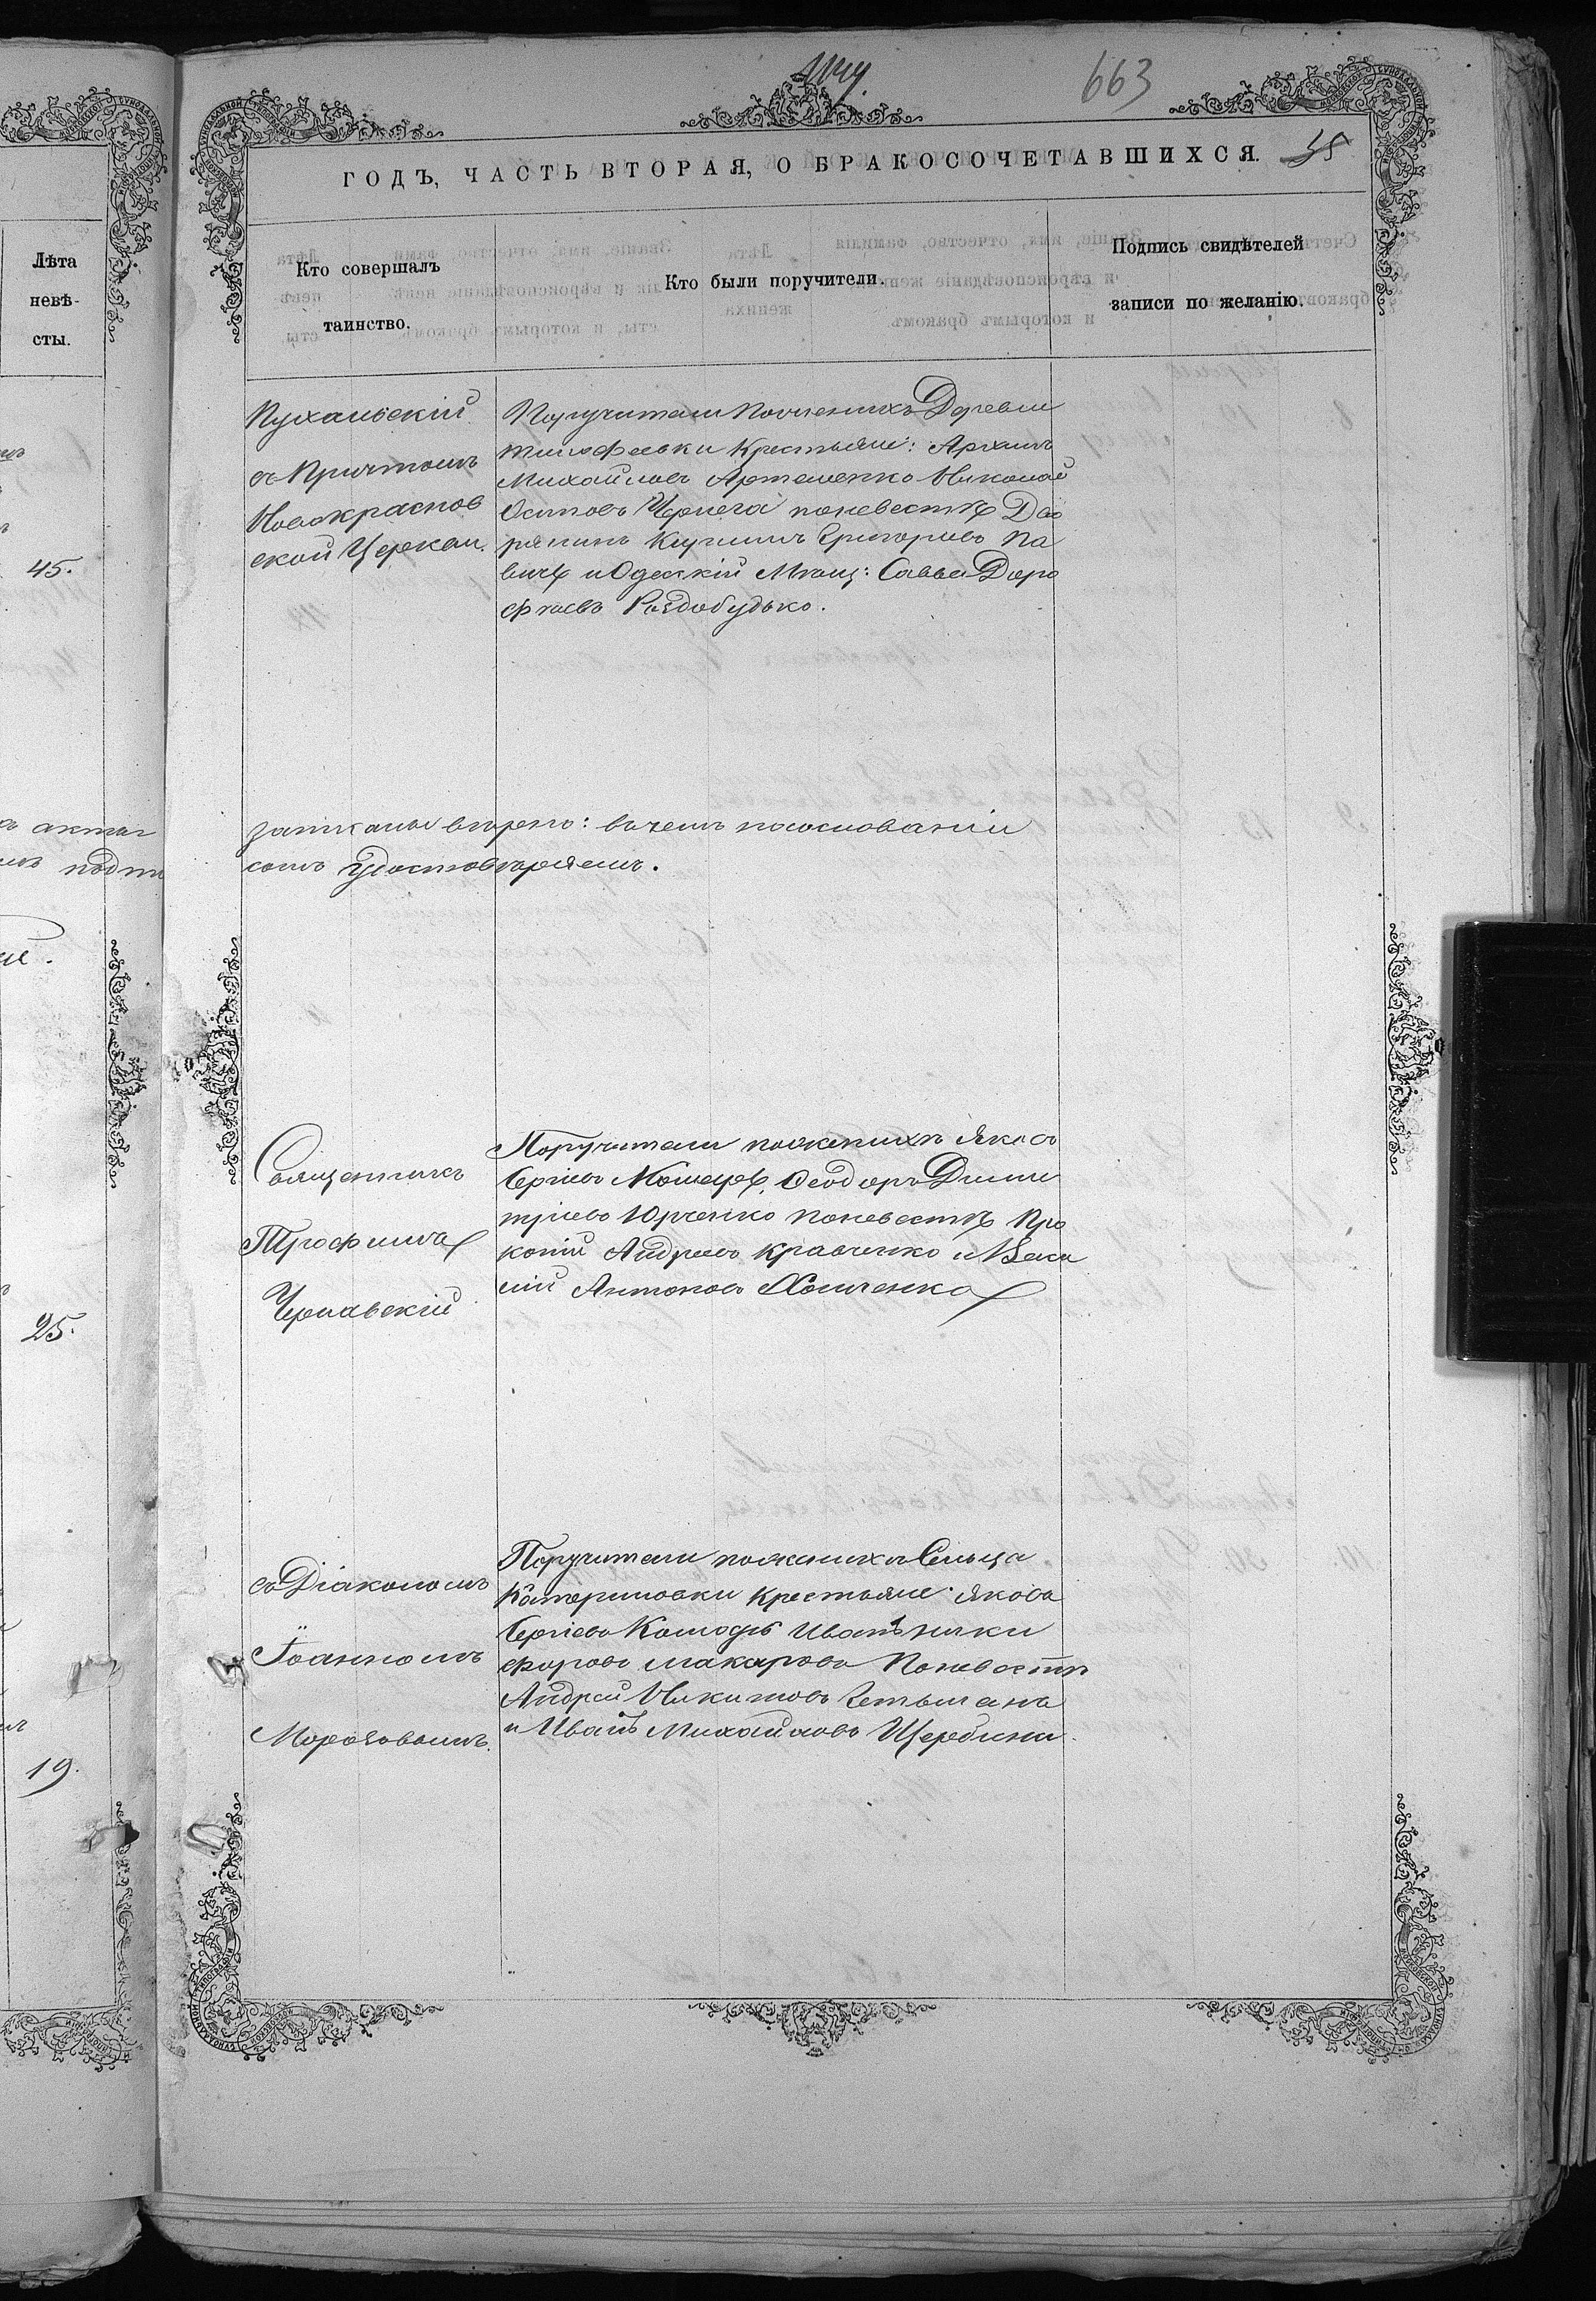 663
ГОДЪ, ЧАСТЬ ВТОРАЯ, О БРАКОСОЧЕТАВШИХСЯ.
35
Лѣта
невѣ-
сты.
Кто совершалъ
таинство.
Кто были поручители.
Подпись свидѣтелей
записи по желанію.
45.
25.
19.
Пухальскій
съ Причтомъ
Новокраснов
ской Церкви.
Поручители Поженихъ Деревни
Тимофеевки Крестьяне: Архипъ
Михайловъ Артеменко Николай
Осиповъ Чернега поневестѣ Дво
рянинъ Григорьевъ Па
вичъ и Одесскій Мѣщ: Савва Доро
фѣевъ Раздобудько.
записаны вѣрно: въ чемъ
симъ удостовѣряемъ.
Священникъ
Трофимъ
Чернявскій
Поручители поженихѣ Яковъ
Сергіевъ Феодоръ Дими
тріевъ Юрченко поневестѣ Про
копій Андреевъ Кравченко и Васи
лій Антоновъ Хомченко
съ Діакономъ
Іоанномъ
Морозовымъ.
Поручители поженихѣ Сельца
Катериновки Крестьяне: Яковъ
Сергіевъ Иванъ Ники
форовъ Макаровъ Поневестѣ
Андрей Никитовъ Гетьманъ
и Иванъ Михайловъ Щербина.